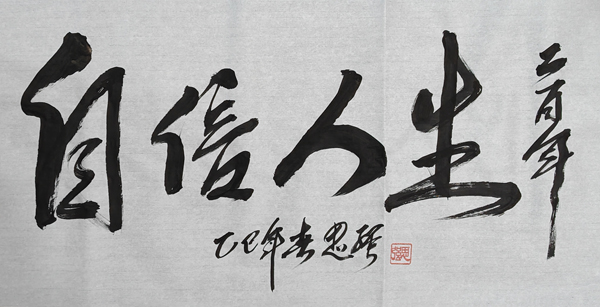 自信人生
二百年
乙巳年春思